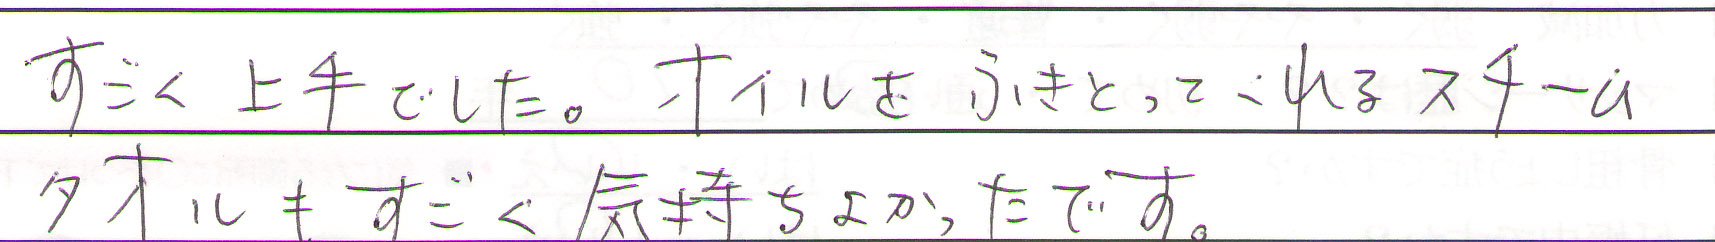 すごく上手でした。オイルをふきとってくれるスチーム
タオルもすごく気持ちよかったです。